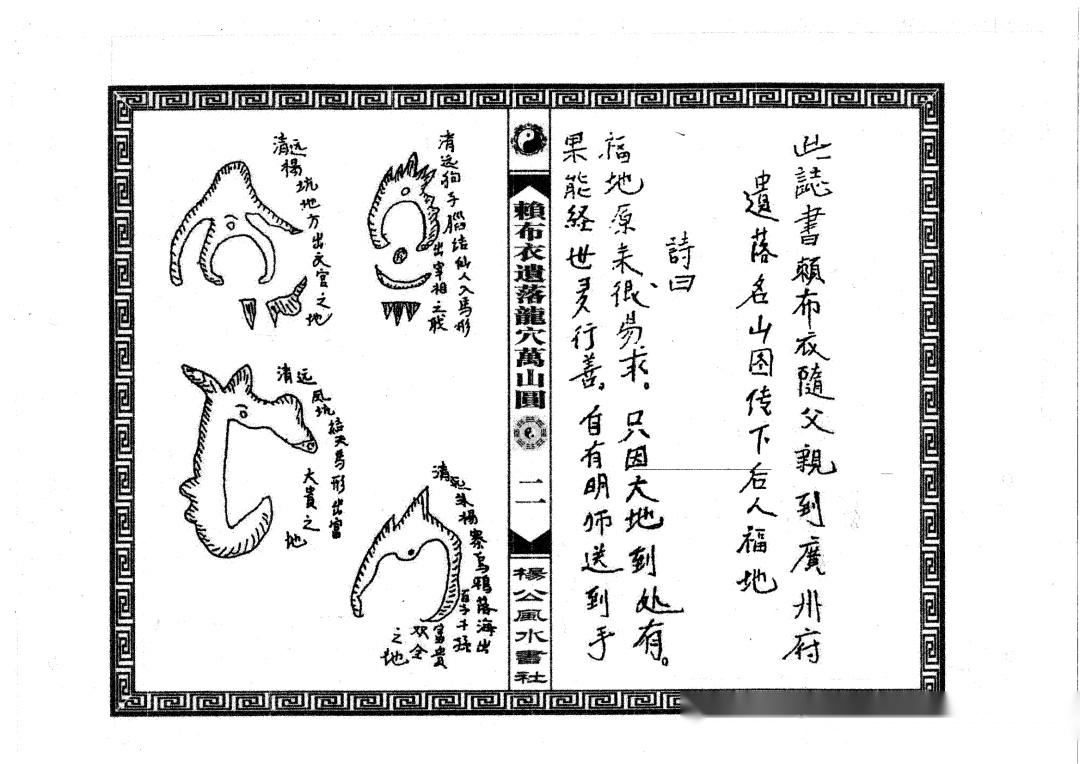 此誌書賴布衣隨父親到廣州府
遺落名山图传下后人福地
詩曰
福地原来很易求。只因大地到处有。
果能経世多行善。自有明师送到手
賴布衣遺落龍穴萬山圓
二一
楊公風水書社
清远狗子腦结仙人入馬形
出宰相之职
清远楊坑地方出文宫之地
清远
風坑结天馬形出富
大貴之地
清远朱楊寨烏鴉落海出
百子千孫
富貴
双全
之地